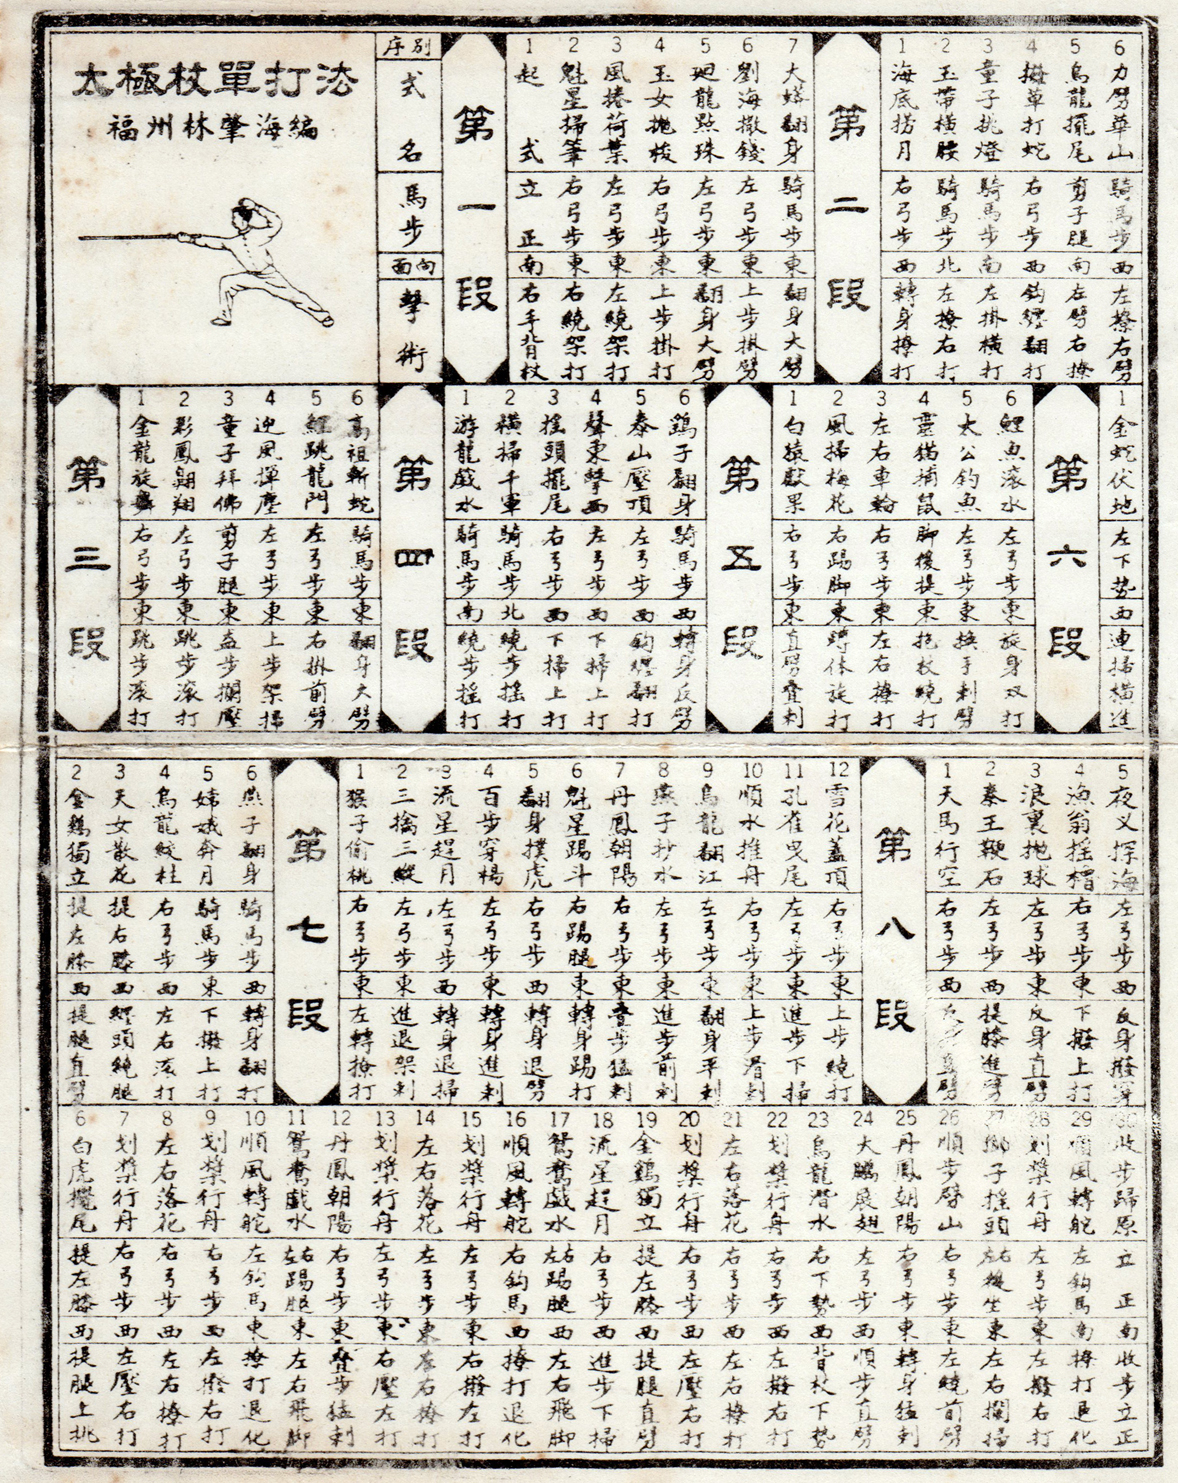 太極杖單打法
福州林肇海編
序別 式名 馬步 面向 擊術
第一段
1 起式 立正 南 右手背杖
2 魁星掃筆 右弓步 東 右繞架打
3 風捲荷葉 左弓步 東 左繞架打
4 玉女拋梭 右弓步 東 上步掛打
5 迴龍點珠 左弓步 東 翻身大劈
6 劉海撒錢 左弓步 東 上步掛劈
7 大蟒翻身 騎馬步 東 翻身大劈
第二段
1 海底撈月 右弓步 西 轉身撩打
2 玉帶橫腰 騎馬步 北 左撩右打
3 童子挑燈 騎馬步 南 左掛橫打
4 撥草打蛇 右弓步 西 鈎纏翻打
5 烏龍擺尾 剪子腿 南 左劈右撩
6 力劈華山 騎馬步 西 左撩右劈
第三段
1 金龍旋舞 右弓步 東 跳步滾打
2 彩鳳翱翔 左弓步 東 跳步滾打
3 童子拜佛 剪子腿 東 盖步攔壓
4 迎風揮塵 左弓步 東 上步架掃
5 鯉跳龍門 左弓步 東 右掛前劈
6 高祖斬蛇 騎馬步 東 翻身大劈
第四段
1 游龍戲水 騎馬步 南 繞步搖打
2 橫掃千軍 騎馬步 北 繞步搖打
3 搖頭擺尾 右弓步 西 下掃上打
4 聲東擊西 左弓步 西 下掃上打
5 泰山壓頂 左弓步 西 鈎纏翻打
6 鷂子翻身 騎馬步 西 轉身反劈
第五段
1 白猿獻果 右弓步 東 直劈疊刺
2 風掃梅花 右踢脚 東 蹲体旋打
3 左右車輪 右弓步 東 左右撩打
4 靈猫捕鼠 脚後提 東 抱杖繞打
5 太公釣魚 左弓步 東 換手刺劈
6 鯉魚滾水 左弓步 東 旋身双打
第六段
1 金蛇伏地 左下势 西 連掃橫進
2 金鷄獨立 提左膝 西 提腿直劈
3 天女散花 提右膝 西 纏頭繞腿
4 烏龍絞柱 右弓步 西 左右滾打
5 嫦娥奔月 騎馬步 東 下撥上打
6 燕子翻身 騎馬步 西 轉身翻打
第七段
1 猴子偷桃 右弓步 東 左轉撩打
2 三擒三縱 左弓步 東 進退架刺
3 流星趕月 左弓步 西 轉身退掃
4 百步穿楊 左弓步 東 轉身進刺
5 翻身撲虎 右弓步 西 轉身退劈
6 魁星踢斗 右踢腿 東 轉身踢打
7 丹鳳朝陽 右弓步 東 疊步猛刺
8 燕子抄水 左弓步 東 進步前刺
9 烏龍翻江 左弓步 東 翻身平刺
10 順水推舟 右弓步 東 上步滑刺
11 孔雀曳尾 左弓步 東 進步下掃
12 雪花蓋頂 右弓步 東 上步繞打
第八段
1 天馬行空 右弓步 西 反身直劈
2 秦王鞭石 左弓步 西 提膝進劈
3 浪裏抛球 左弓步 東 反身直劈
4 漁翁搖櫓 右弓步 東 下撥上打
5 夜叉探海 左弓步 西 反身撥穿
6 白虎攪尾 提左膝 西 提腿上挑
7 划槳行舟 右弓步 西 左壓右打
8 左右落花 右弓步 西 左右撩打
9 划槳行舟 右弓步 西 左撥右打
10 順風轉舵 左鈎馬 東 撩打退化
11 鴛鴦戲水 左右踢腿 東 左右飛脚
12 丹鳳朝陽 右弓步 東 疊步猛刺
13 划槳行舟 左弓步 東 右壓左打
14 左右落花 左弓步 東 左右撩打
15 划槳行舟 左弓步 東 右撥左打
16 順風轉舵 右鈎馬 西 撩打退化
17 鴛鴦戲水 左右踢腿 西 左右飛脚
18 流星趕月 右弓步 西 進步下掃
19 金鷄獨立 提左膝 西 提腿直劈
20 划槳行舟 右弓步 西 左壓右打
21 左右落花 右弓步 西 左右撩打
22 划槳行舟 右弓步 西 左撥右打
23 烏龍潛水 右下勢 西 背杖下勢
24 大鵬展翅 左弓步 西 順步直劈
25 丹鳳朝陽 右弓步 東 轉身猛刺
26 順步劈山 右弓步 東 左繞前劈
27 獅子搖頭 左右 東 左右攔掃
28 划槳行舟 左弓步 東 左撥右打
29 順風轉舵 左鈎馬 南 撩打退化
30 收步歸原 立正 南 收步立正